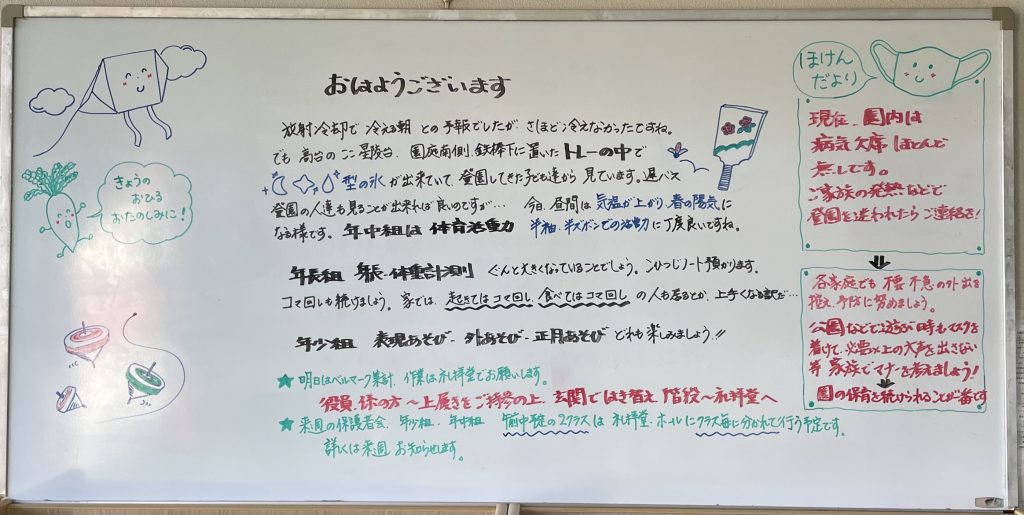 おはようございます
放射冷却で 冷える朝 との予報でしたが、さほど冷えなかったですね。
でも 高台のここ星陵台、園庭南側、鉄棒下に置いた トレーの中で
型の氷 が出来ていて、登園してきた子ども達から 見ています。通バス
登園の人達も見ることが出来れば良いのですが… 今日、昼間は 気温が上がり、春の陽気に
なる様です。 年中組は 体育活動 半袖、半ズボンでの活動に丁度良いですね。
年長組 身長・体重計測 ぐんと大きくなっていることでしょう。こひつじノート預かります。
コマ回しも続けましょう。家では、起きてはコマ回し、食べてはコマ回し の人も居るとか、上手くなる訳だ…
年少組 表現あそび・外あそび・正月あそび どれも楽しみましょう!!
★ 明日はベルマーク集計、作業は礼拝堂でお願いします。
役員、係の方〜上履きをご持参の上、玄関ではき替え 階段〜礼拝堂へ
★ 来週の保護者会、年少組・年中組 午前中予定の2クラスは 礼拝堂・ホールにクラス毎に分かれて行う予定です。
詳しくは来週 お知らせします。
きょうの
おひる
おたのしみに!
ほけん
だより
現在、園内は
病気欠席 ほとんど
無しです。
ご家族の発熱などで
登園を迷われたら ご連絡を!
各家庭でも 不要不急の外出を
控え、予防に努めましょう。
公園などで遊ぶ時もマスクを
着けて、必要以上の大声を出さない
等 家族でマナーを考えましょう!
園の保育を続けられることが一番です